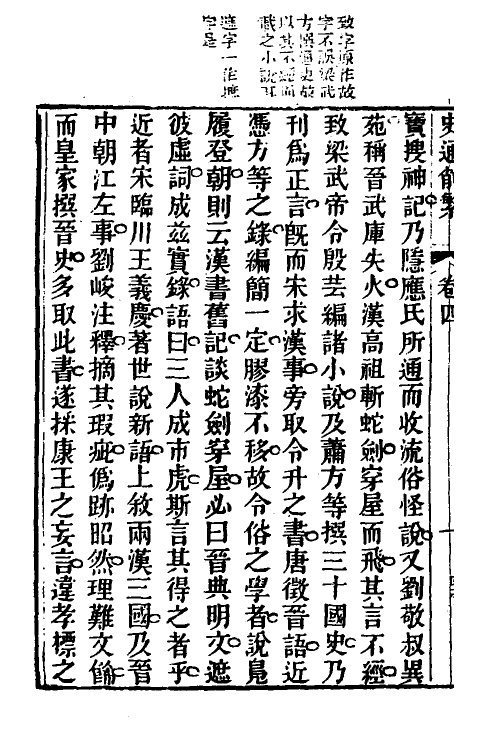 致字原作故
字不誤梁武
方撰通史故
以其不經而
載之小說耳
遮字一作撫
字是
史通削繁
卷四
寶搜神記乃隱應氏所通而收流俗怪說又劉敬叔異
苑稱晉武庫失火漢高祖斬蛇劍穿屋而飛其言不經
致梁武帝令殷芸編諸小說及蕭方等撰三十國史乃
刊爲正言旣而宋求漢事旁取令升之書唐徵晉語近
憑方等之錄編簡一定膠漆不移故令俗之學者說鳧
履登朝則云漢書舊記談蛇劍穿屋必曰晉典明文遮
彼虛詞成茲實錄語曰三人成市虎斯言其得之者乎
近者宋臨川王義慶著世說新語上敘兩漢三國及晉
中朝江左事劉峻注釋摘其瑕疵僞跡昭然理難文飾
而皇家撰晉史多取此書遂採康王之妄言違孝標之